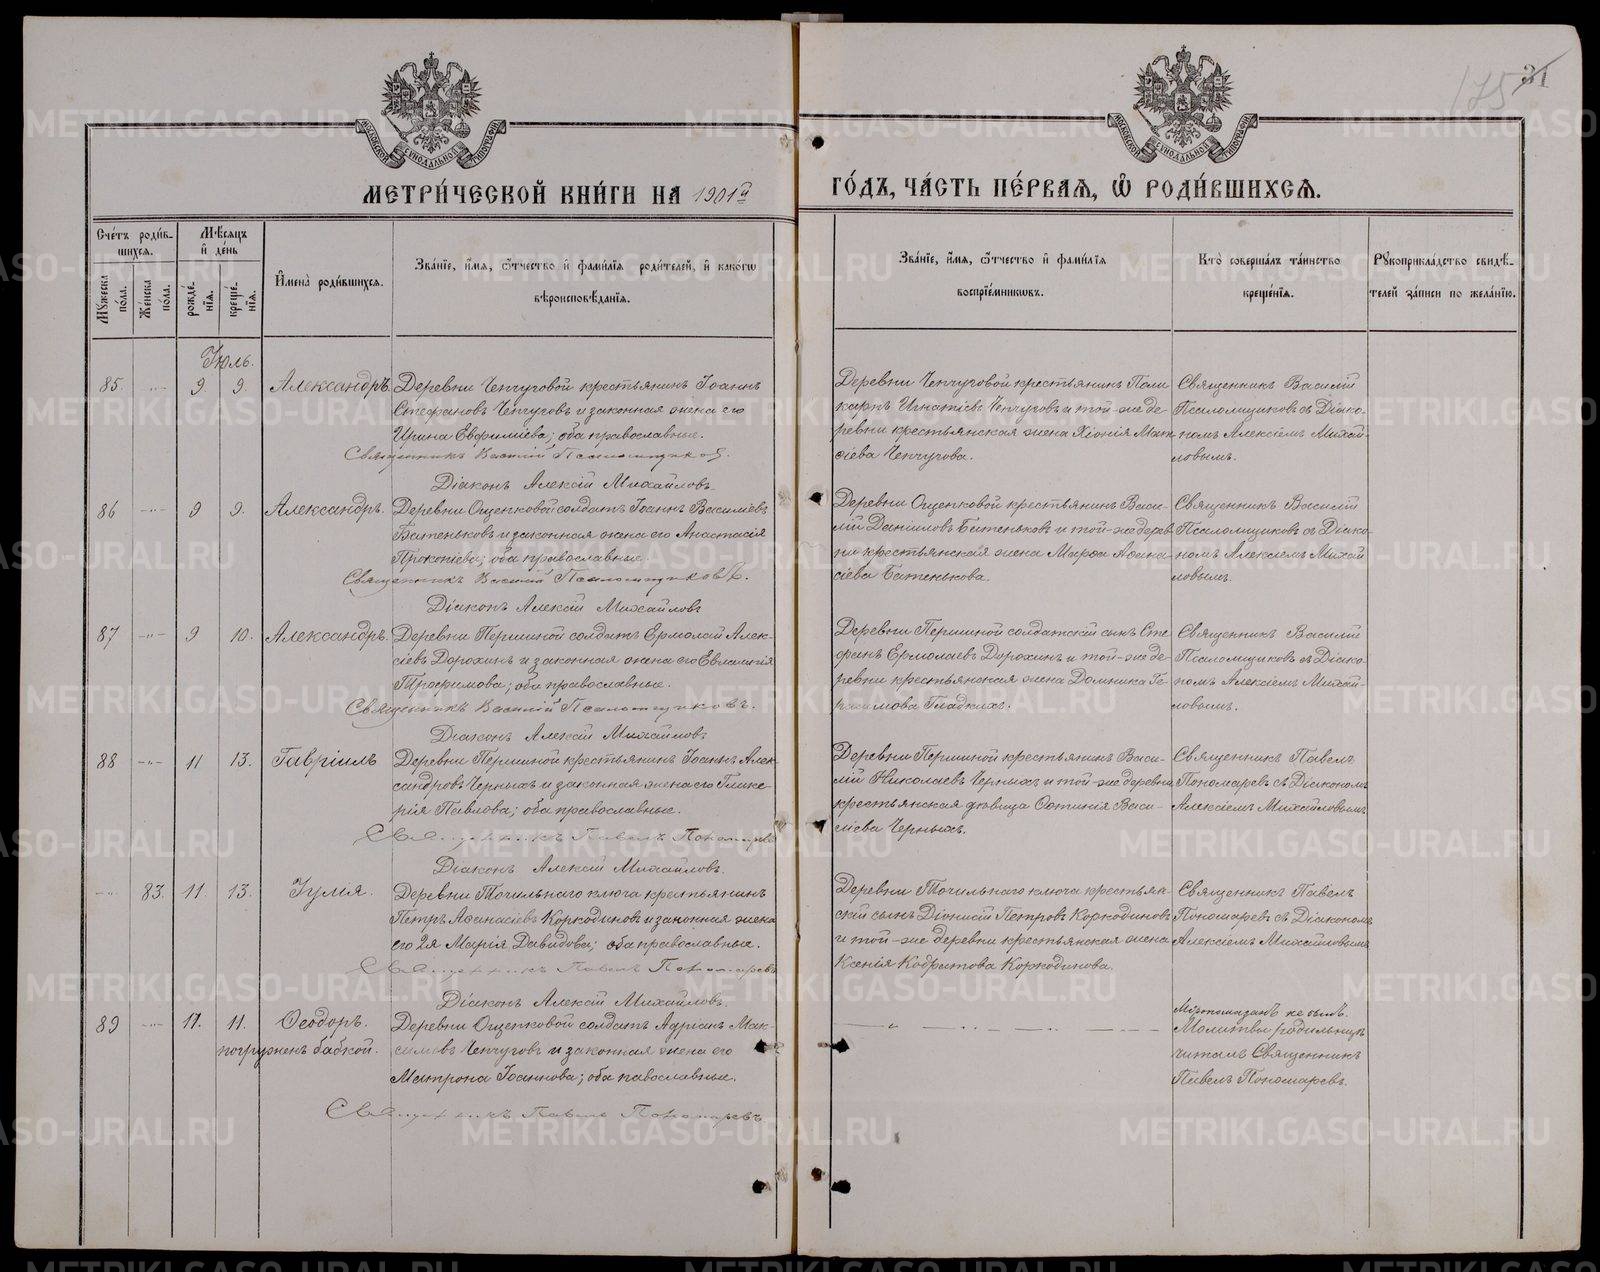 175 31
МОСКОВСКОЙ СѴНОДАЛЬНОЙ ТИПОГРАФІИ
МОСКОВСКОЙ СѴНОДАЛЬНОЙ ТИПОГРАФІИ
МЕТРИ́ЧЕСКОЙ КНИ́ГИ НА 1901й
ГО́ДЪ, ЧА́СТЬ ПЕ́РВАѦ, Ѡ҆ РОДИ́ВШИХСѦ.
Счетъ роди́в-
шихсѧ.
Мꙋ́жеска по́ла.
Же́нска по́ла.
Мѣ́сѧцъ
и҆ де́нь
рожде́-
нїѧ.
креще́-
нїѧ.
И҆мена̀ роди́вшихсѧ.
Зва́нїе, и҆́мѧ, ѻ҆́тчество и҆ фами́лїѧ роди́телей, и҆ како́гѡ
вѣроисповѣ́данїѧ.
Зва́нїе, и҆́мѧ, ѻ҆́тчество и҆ фами́лїѧ
воспрїе́мникѡвъ.
Кто̀ соверша́лъ та́инство
креще́нїѧ.
Рꙋкоприкла́дство свидѣ́-
телей за́писи по жела́нїю.
Іюль.
85. -"- 9. 9. Александръ.
Деревни Чепчуговой крестьянинъ Іоаннъ
Стефановъ Чепчуговъ и законная жена его
Ирина Евфиміева; оба православные.
Священникъ Василій Псаломщиковъ.
Діаконъ Алексій Михайловъ.
Деревни Чепчуговой крестьянинъ Поли-
карпъ Игнатіевъ Чепчуговъ и той-же де-
ревни крестьянская жена Хіонія Мат-
ѳіева Чепчугова.
Священникъ Василій
Псаломщиковъ съ Діако-
номъ Алексіемъ Михай-
ловымъ.
86 -"- 9 9. Александръ.
Деревни Ощепковой солдатъ Іоаннъ Василіевъ
Батеньковъ и законная жена его Анастасія
Прокопіева; оба православные.
Священникъ Василій Псаломщиковъ.
Діаконъ Алексій Михайловъ
Деревни Ощепковой крестьянинъ Васи-
лій Даниловъ Батеньковъ и той-же дерев-
ни крестьянская жена Марѳа Аѳана-
сіева Батенькова.
Священникъ Василій
Псаломщиковъ съ Діако-
номъ Алексіемъ Михай-
ловымъ.
87 -"- 9 10. Александръ.
Деревни Першиной солдатъ Ермолай Алек-
сіевъ Дорохинъ и законная жена его Евлампія
Трофимова; оба православные.
Священникъ Василій Псаломщиковъ.
Діаконъ Алексій Михайловъ
Деревни Першиной солдатскій сынъ Сте-
фанъ Ермолаевъ Дорохинъ и той-же де-
ревни крестьянская жена Домника Ге-
расимова Гладкихъ.
Священникъ Василій
Псаломщиковъ съ Діако-
номъ Алексіемъ Михай-
ловымъ.
88 -"- 11 13. Гавріилъ
Деревни Першиной крестьянинъ Іоаннъ Алек-
сандровъ Черныхъ и законная жена его Глике-
рія Павлова; оба православные.
Священникъ Павелъ Пономаревъ
Діаконъ Алексій Михайловъ.
Деревни Першиной крестьянинъ Васи-
лій Николаевъ Черныхъ и той-же деревни
крестьянская дѣвица Фотинія Васи-
ліева Черныхъ.
Священникъ Павелъ
Пономаревъ съ Діакономъ
Алексіемъ Михайловымъ
-"- 83. 11. 13. Іулія.
Деревни Точильнаго ключа крестьянинъ
Петръ Аѳанасіевъ Коркодиновъ и законная жена
его 2я Марія Давидова; оба православные.
Священникъ Павелъ Пономаревъ
Діаконъ Алексій Михайловъ.
Деревни Точильнаго ключа крестьян-
скій сынъ Діонисій Петровъ Коркодиновъ
и той-же деревни крестьянская жена
Ксенія Кодратова Коркодинова.
Священникъ Павелъ
Пономаревъ съ Діакономъ
Алексіемъ Михайловымъ
89 -"- 11. 11. Ѳеодоръ.
погруженъ бабкой.
Деревни Ощепковой солдатъ Адріанъ Мак-
симовъ Чепчуговъ и законная жена его
Матрона Іоаннова; оба павославные.
Священникъ Павелъ Пономаревъ
Мѵропомазанъ не былъ.
Молитвы родильницѣ
читалъ Священникъ
Павелъ Пономаревъ.
METRIKI.GASO-URAL.RU